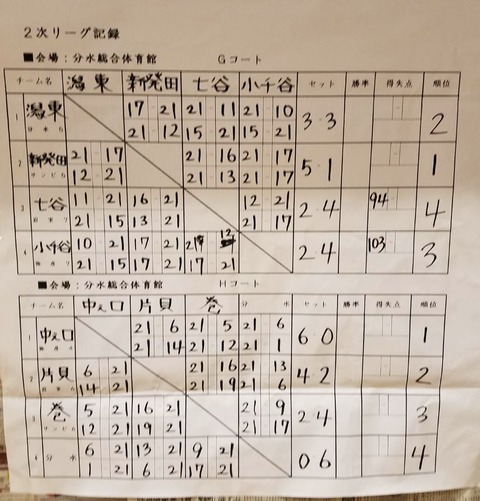 2次リーグ記録
■会場：分水総合体育館 Gコート
チーム名 潟東 新発田 七谷 小千谷 セット 勝率 得失点 順位
1 潟東 17 21 21 11 21 10 3 3 2
21 12 15 21 15 21
2 新発田 21 17 21 16 21 17 5 1 1
12 21 21 13 21 17
3 七谷 11 21 16 21 12 21 2 4 94 4
21 15 13 21 21 17
4 小千谷 10 21 17 21 21 12 2 4 103 3
21 15 17 21 17 21
■会場：分水総合体育館 Hコート
チーム名 中之口 片貝 巻 分水 セット 勝率 得失点 順位
1 中之口 21 6 21 5 21 6 6 0 1
21 14 21 12 21 1
2 片貝 6 21 21 16 21 13 4 2 2
14 21 21 19 21 6
3 巻 5 21 16 21 21 9 2 4 3
12 21 19 21 21 17
4 分水 6 21 13 21 9 21 0 6 4
1 21 6 21 17 21